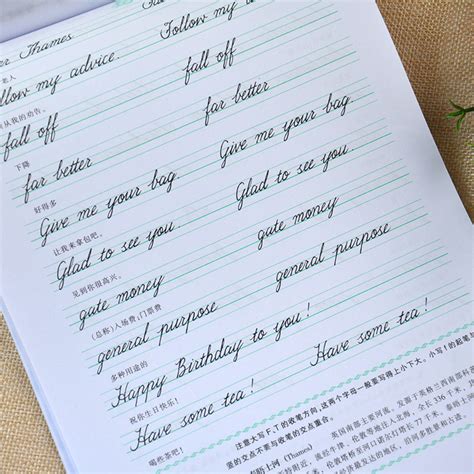 Thames
老人
ollow my advice. Follow my advice.
从我的劝告。
fall off fall off
下降
far better far better
好得多
Give me your bag. Give me your bag.
让我来拿包吧。
Glad to see you. Glad to see you.
见到你很高兴。
gate money gate money
(总称)入场费;门票费
general purpose general purpose
多种用途的
Happy Birthday to you!
祝你生日快乐!
Have some tea! Have some tea!
喝些茶吧!
注意大写F、T的收笔方向,这两个字母一般要写得上小下大。小写f的起笔
的交点不要与收笔的交点重合。
士河(Thames) 英国南部主要河流,发源于英格兰西南部
附近,流经牛津、伦敦等地注入北海,全长336千米
伦敦塔桥至河口